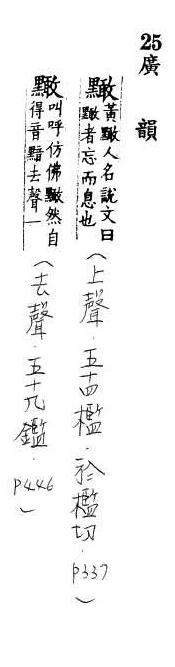 25廣韻
黭黃黭人名說文曰
黭者忘而息也（上聲．五十四檻．於檻切．P337）
黭叫呼仿佛黭然自
得音黯去聲一（去聲．五十九鑑．P446）